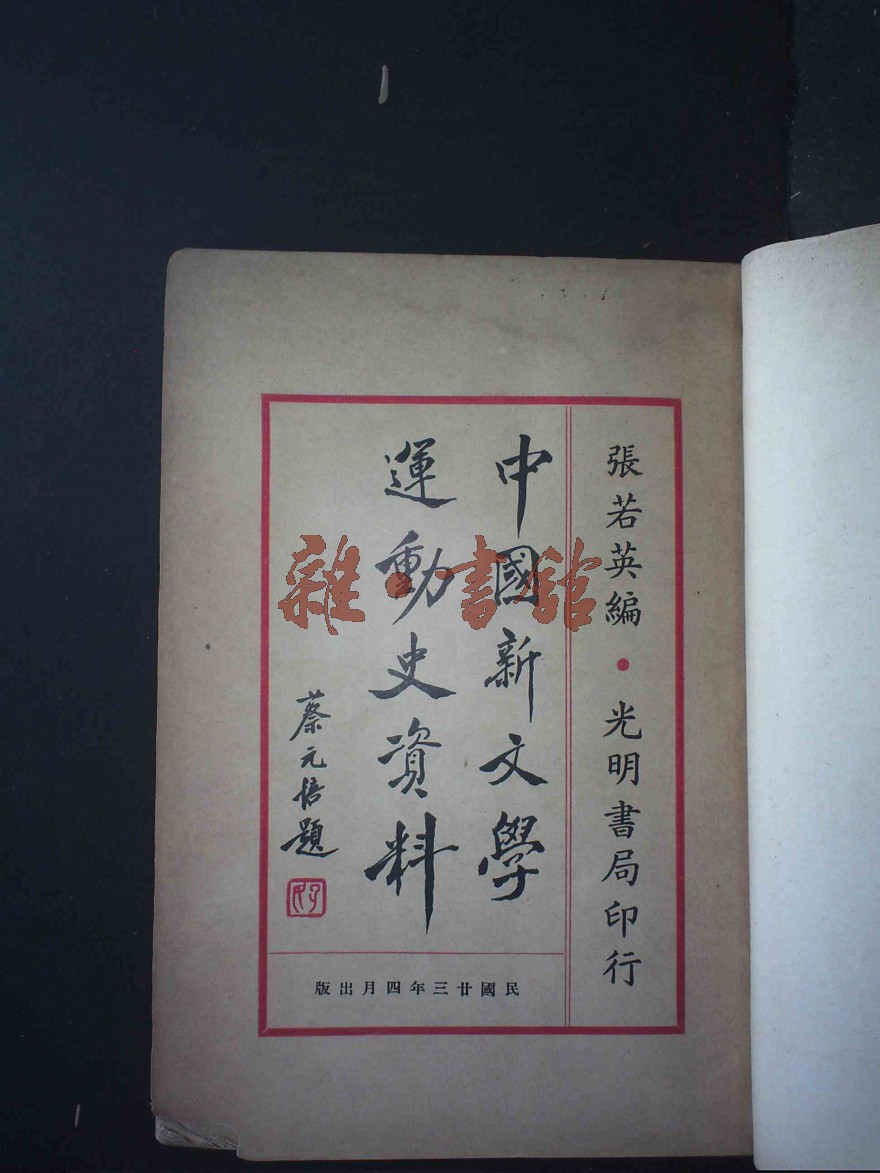 張若英編·光明書局印行
中國新文學
運動史資料
蔡元培題
民國廿三年四月出版
雜·書館